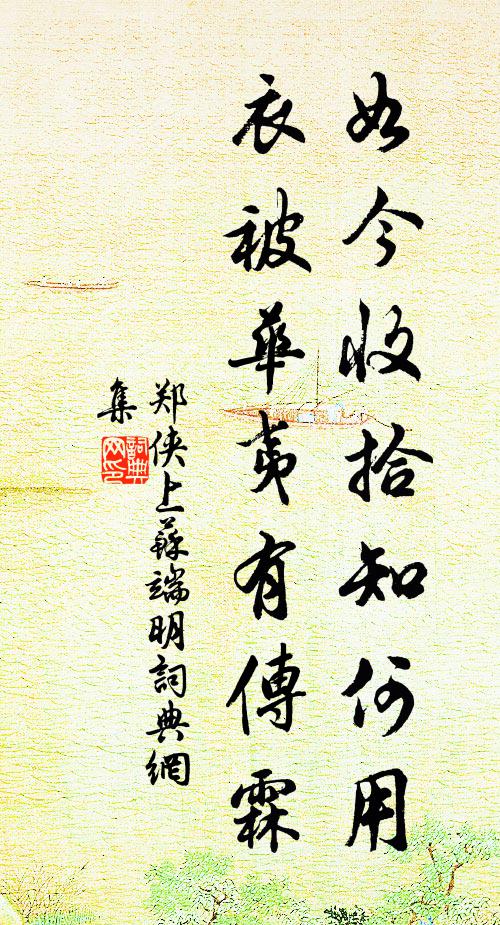 如今收拾知何用
衣被華夷有傳霖
郑侠上蘇端明詞典網
集
詞典
网印